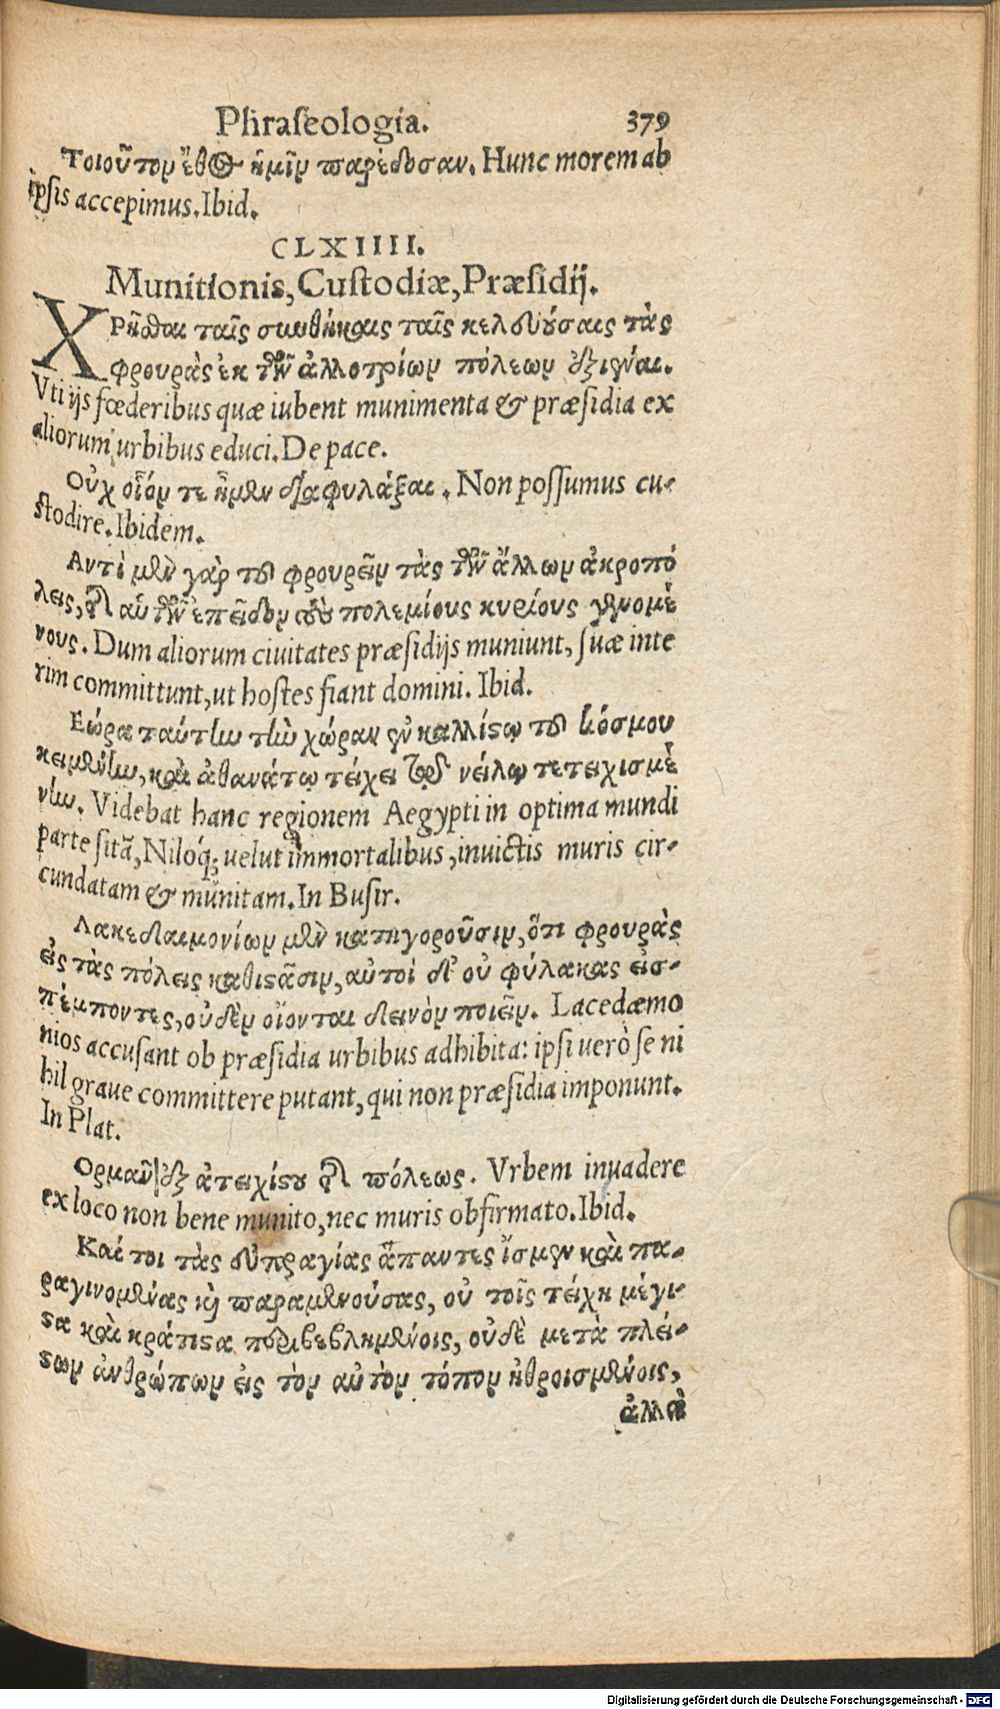 Phraseologia. 379
Τοιοῦτον ἔθος ἡμῖν παρέδοσαν. Hunc morem ab
ipsis accepimus. Ibid.
CLXIIII.
Munitionis, Custodiæ, Præsidij.
ΧΡῆσθαι ταῖς συνθήκαις ταῖς κελευούσαις τὰς
φρουρὰς ἐκ τῶν ἀλλοτρίων πόλεων ἐξιέναι.
Vti ijs fœderibus quæ iubent munimenta & præsidia ex
aliorum urbibus educi. De pace.
Οὐχ οἷόν τε ἦμεν διαφυλάξαι. Non possumus cu-
stodire. Ibidem.
Αντὶ μὲν γὰρ τοῦ φρουρεῖν τὰς τῶν ἄλλων ἀκροπό
λεις, τῆς αὑτῶν ἐπεῖδον τοὺς πολεμίους κυρίους γενομέ
νους. Dum aliorum ciuitates præsidijs muniunt, suæ inte
rim committunt, ut hostes fiant domini. Ibid.
Εώρα ταύτην τὴν χώραν ἐν καλλίστῳ τοῦ κόσμου
κειμένην, καὶ ἀθανάτῳ τείχει τῷ νείλῳ τετειχισμέ
νην. Videbat hanc regionem Aegypti in optima mundi
parte sitā, Niloq́; uelut immortalibus, inuictis muris cir-
cundatam & munitam. In Busir.
Λακεδαιμονίων μὲν κατηγοροῦσιν, ὅτι φρουρὰς
εἰς τὰς πόλεις καθιστᾶσιν, αὐτοὶ δ' οὐ φύλακας εἰσ-
πέμποντες, οὐδὲν οἴονται δεινὸν ποιεῖν. Lacedæmo
nios accusant ob præsidia urbibus adhibita: ipsi uerò se ni
hil graue committere putant, qui non præsidia imponunt.
In Plat.
Ορμᾶν ἐξ ἀτειχίστου τῆς πόλεως. Vrbem inuadere
ex loco non bene munito, nec muris obfirmato. Ibid.
Καί τοι τὰς εὐπραγίας ἅπαντες ἴσμεν καὶ πα-
ραγινομένας καὶ παραμενούσας, οὐ τοῖς τείχη μέγι-
στα καὶ κράτιστα περιβεβλημένοις, οὐδὲ μετὰ πλεί-
στων ἀνθρώπων εἰς τὸν αὐτὸν τόπον ἠθροισμένοις,
ἀλλὰ
Digitalisierung gefördert durch die Deutsche Forschungsgemeinschaft - DFG